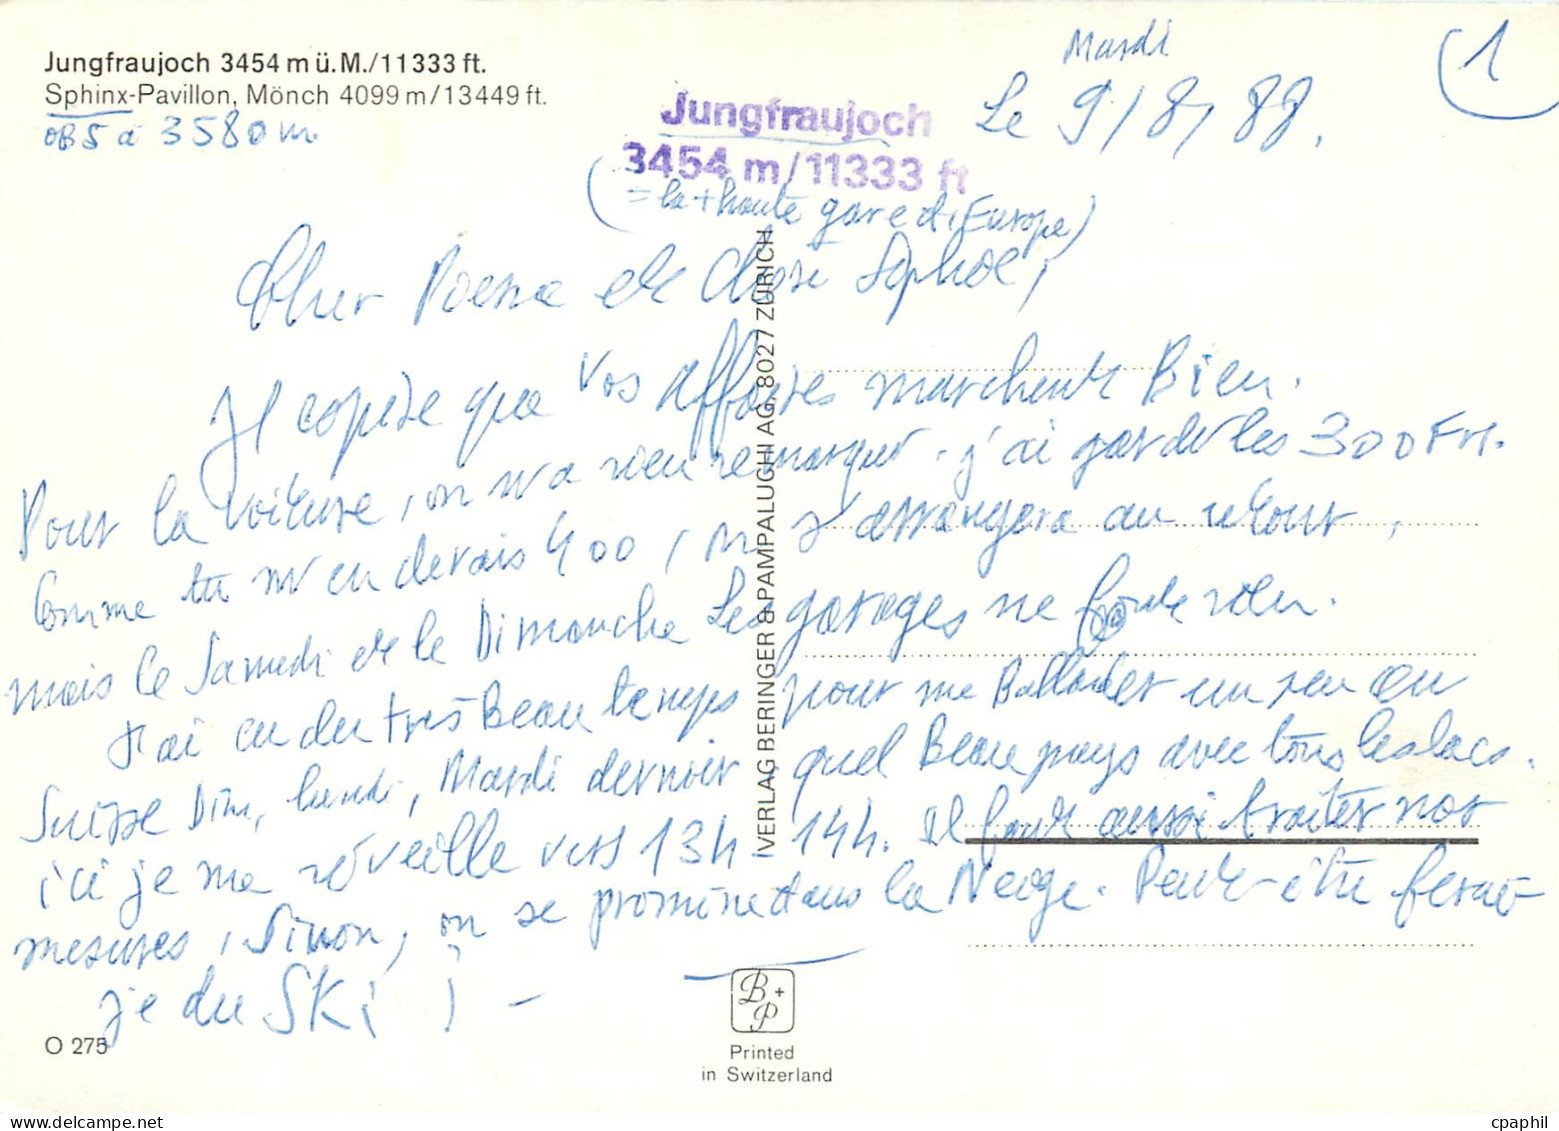 Jungfraujoch 3454 m ü.M./11333 ft.
Sphinx-Pavillon, Mönch 4099 m/13449 ft.
OBS à 3580 m.
Jungfraujoch
3454 m/11333 ft
(= la + haute gare d'Europe)
Mardi
Le 9/8/88.
1
Cher et Chère
J'espère que vos affaires marchent Bien.
Pour la voiture, on n'a rien remarqué. j'ai gardé les 300 Frs.
Comme tu m'en devais 400, on s'arrangera au retour,
mais le Samedi et le Dimanche Les garages ne foute rien.
J'ai eu du très Beau temps pour me Ballader un peu en
Suisse Dim, lundi, Mardi dernier. quel Beau pays avec tous les lacs.
ici je me réveille vers 13h - 14h. Il faut aussi traiter nos
mesures, Sinon, on se promène dans la Neige. Peut-être ferai-
je du SKi ! -
VERLAG BERINGER & PAMPALUCHI AG, 8027 ZÜRICH
B+P
O 275
Printed
in Switzerland
cpaphil